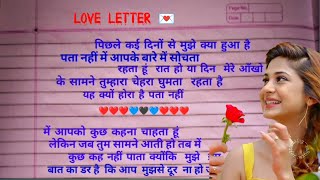 Page No.
Date
LOVE LETTER 💌
पिछले कई दिनों से मुझे क्या हुआ है
पता नहीं में आपके बारे में सोचता
रहता हूं रात हो या दिन मेरे आँखों
के सामने तुम्हारा चेहरा घुमता रहता है
यह क्यों होरा है पता नहीं
❤️❤️❤️💙🖤💙❤️❤️❤️
में आपको कुछ कहना चाहता हूं
लेकिन जब तुम सामने आती हो तब में
कुछ कह नहीं पाता क्योंकि मुझे
बात का डर है कि आप मुझसे दूर ना हो